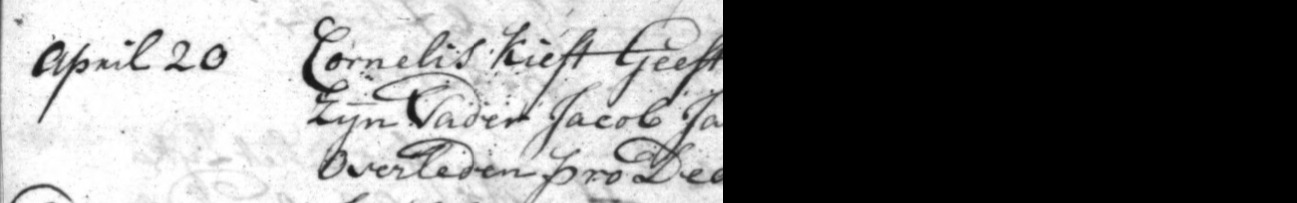 April 20 Cornelis Kieft Geeft
Zyn Vader Jacob Ja
Overleden pro Deo